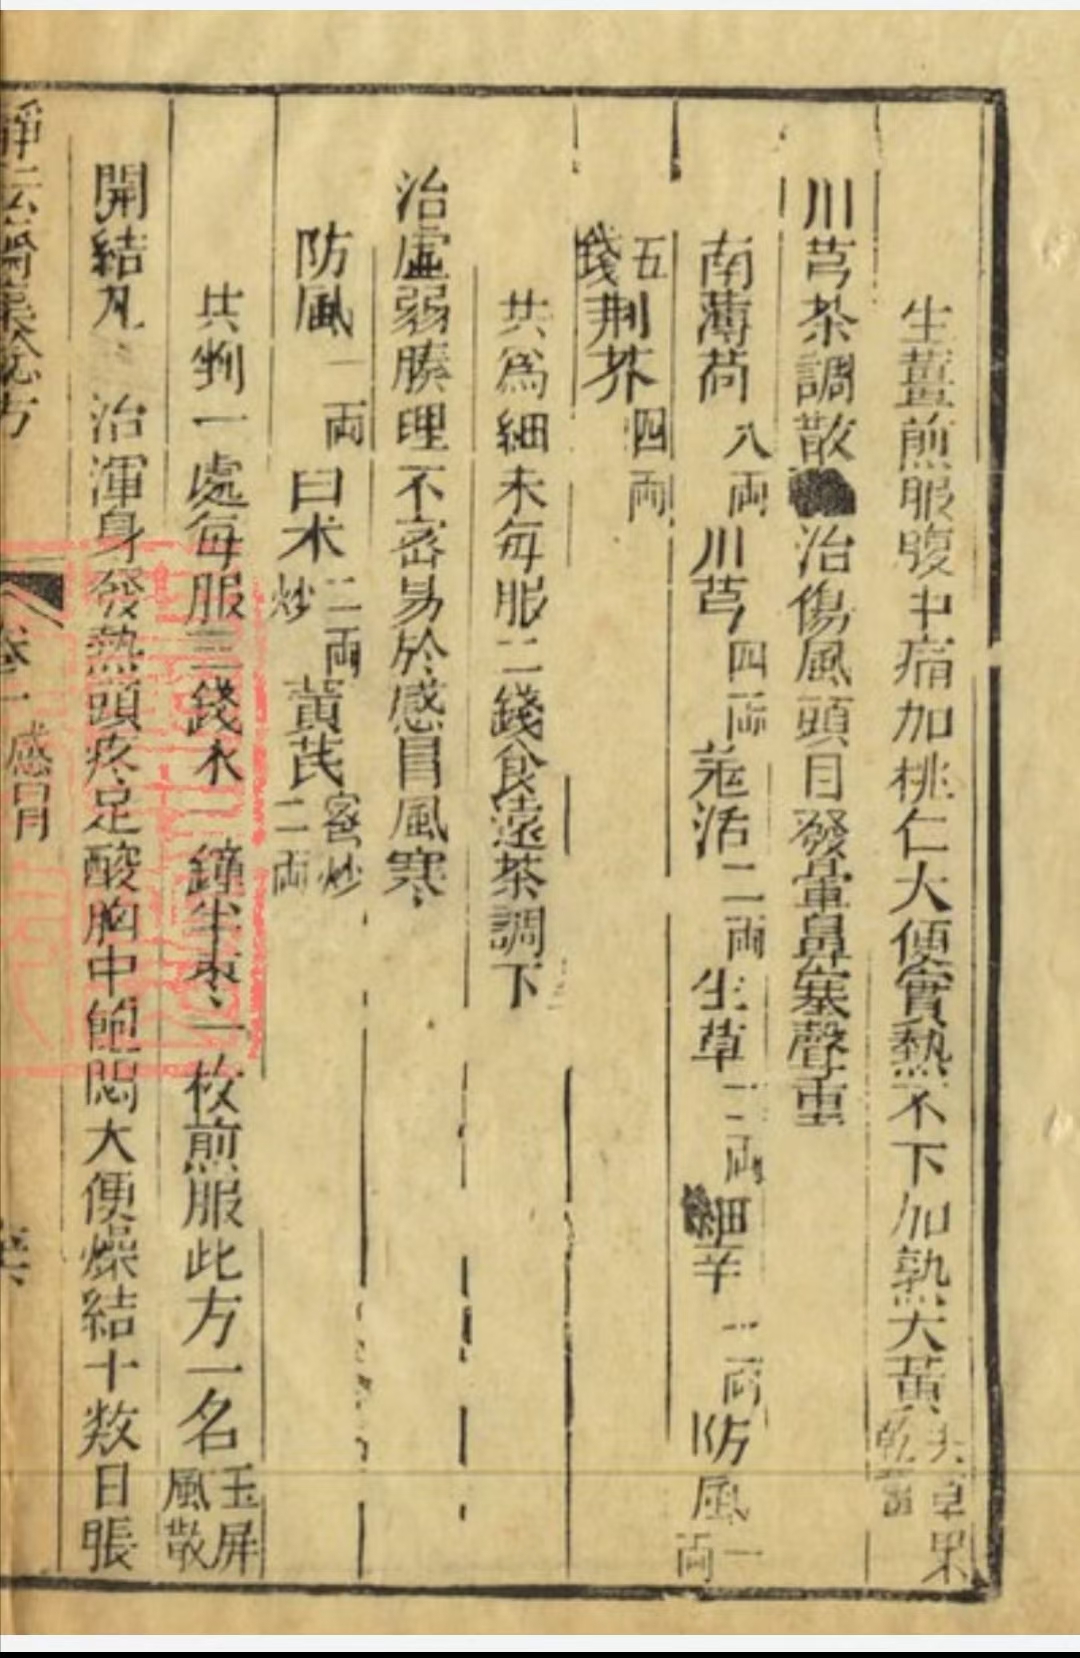 生薑煎服腹中痛加桃仁大便實熱不下加熟大黃去草果
川芎茶調散治傷風頭目發暈鼻塞聲重
南薄荷八両川芎四両羗活二両生草二両細辛一両防風一両
五錢荆芥四両
共為細末每服二錢食遠茶調下
治虛弱腠理不密易於感冒風寒
防風一両白术二両炒黃芪密炒二両
共判一處每服三錢水二鐘半枣一枚煎服此方一名玉屏風散
開結丸治渾身發熱頭疼足酸胸中飽悶大便燥結十数日脹
卷一感冒